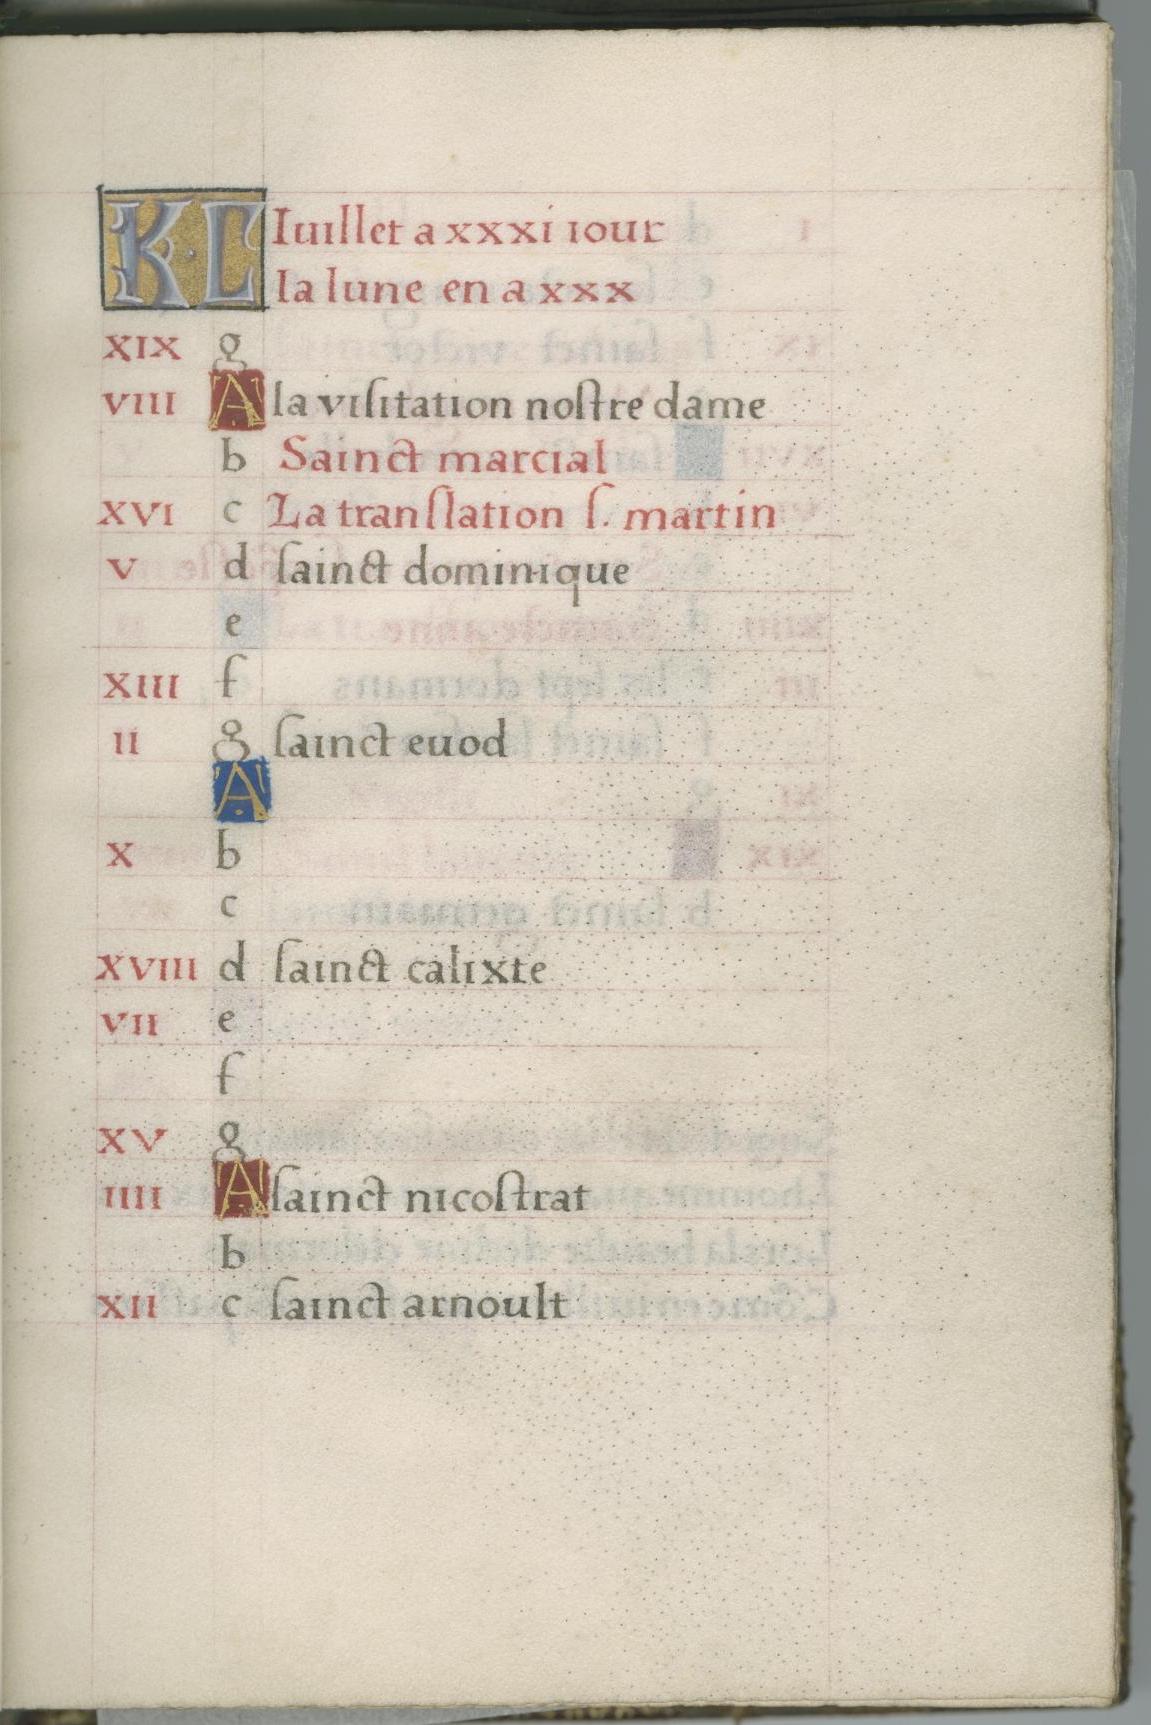 KL Iuillet a xxxi iour
la lune en a xxx
XIX g
VIII A la viſitation noſtre dame
b Sainct marcial
XVI c La tranſlation ſ. martin
V d ſainct dominique
e
XIII f
II g ſainct euod
A
X b
c
XVIII d ſainct calixte
VII e
f
XV g
IIII A ſainct nicoſtrat
b
XII c ſainct arnoult